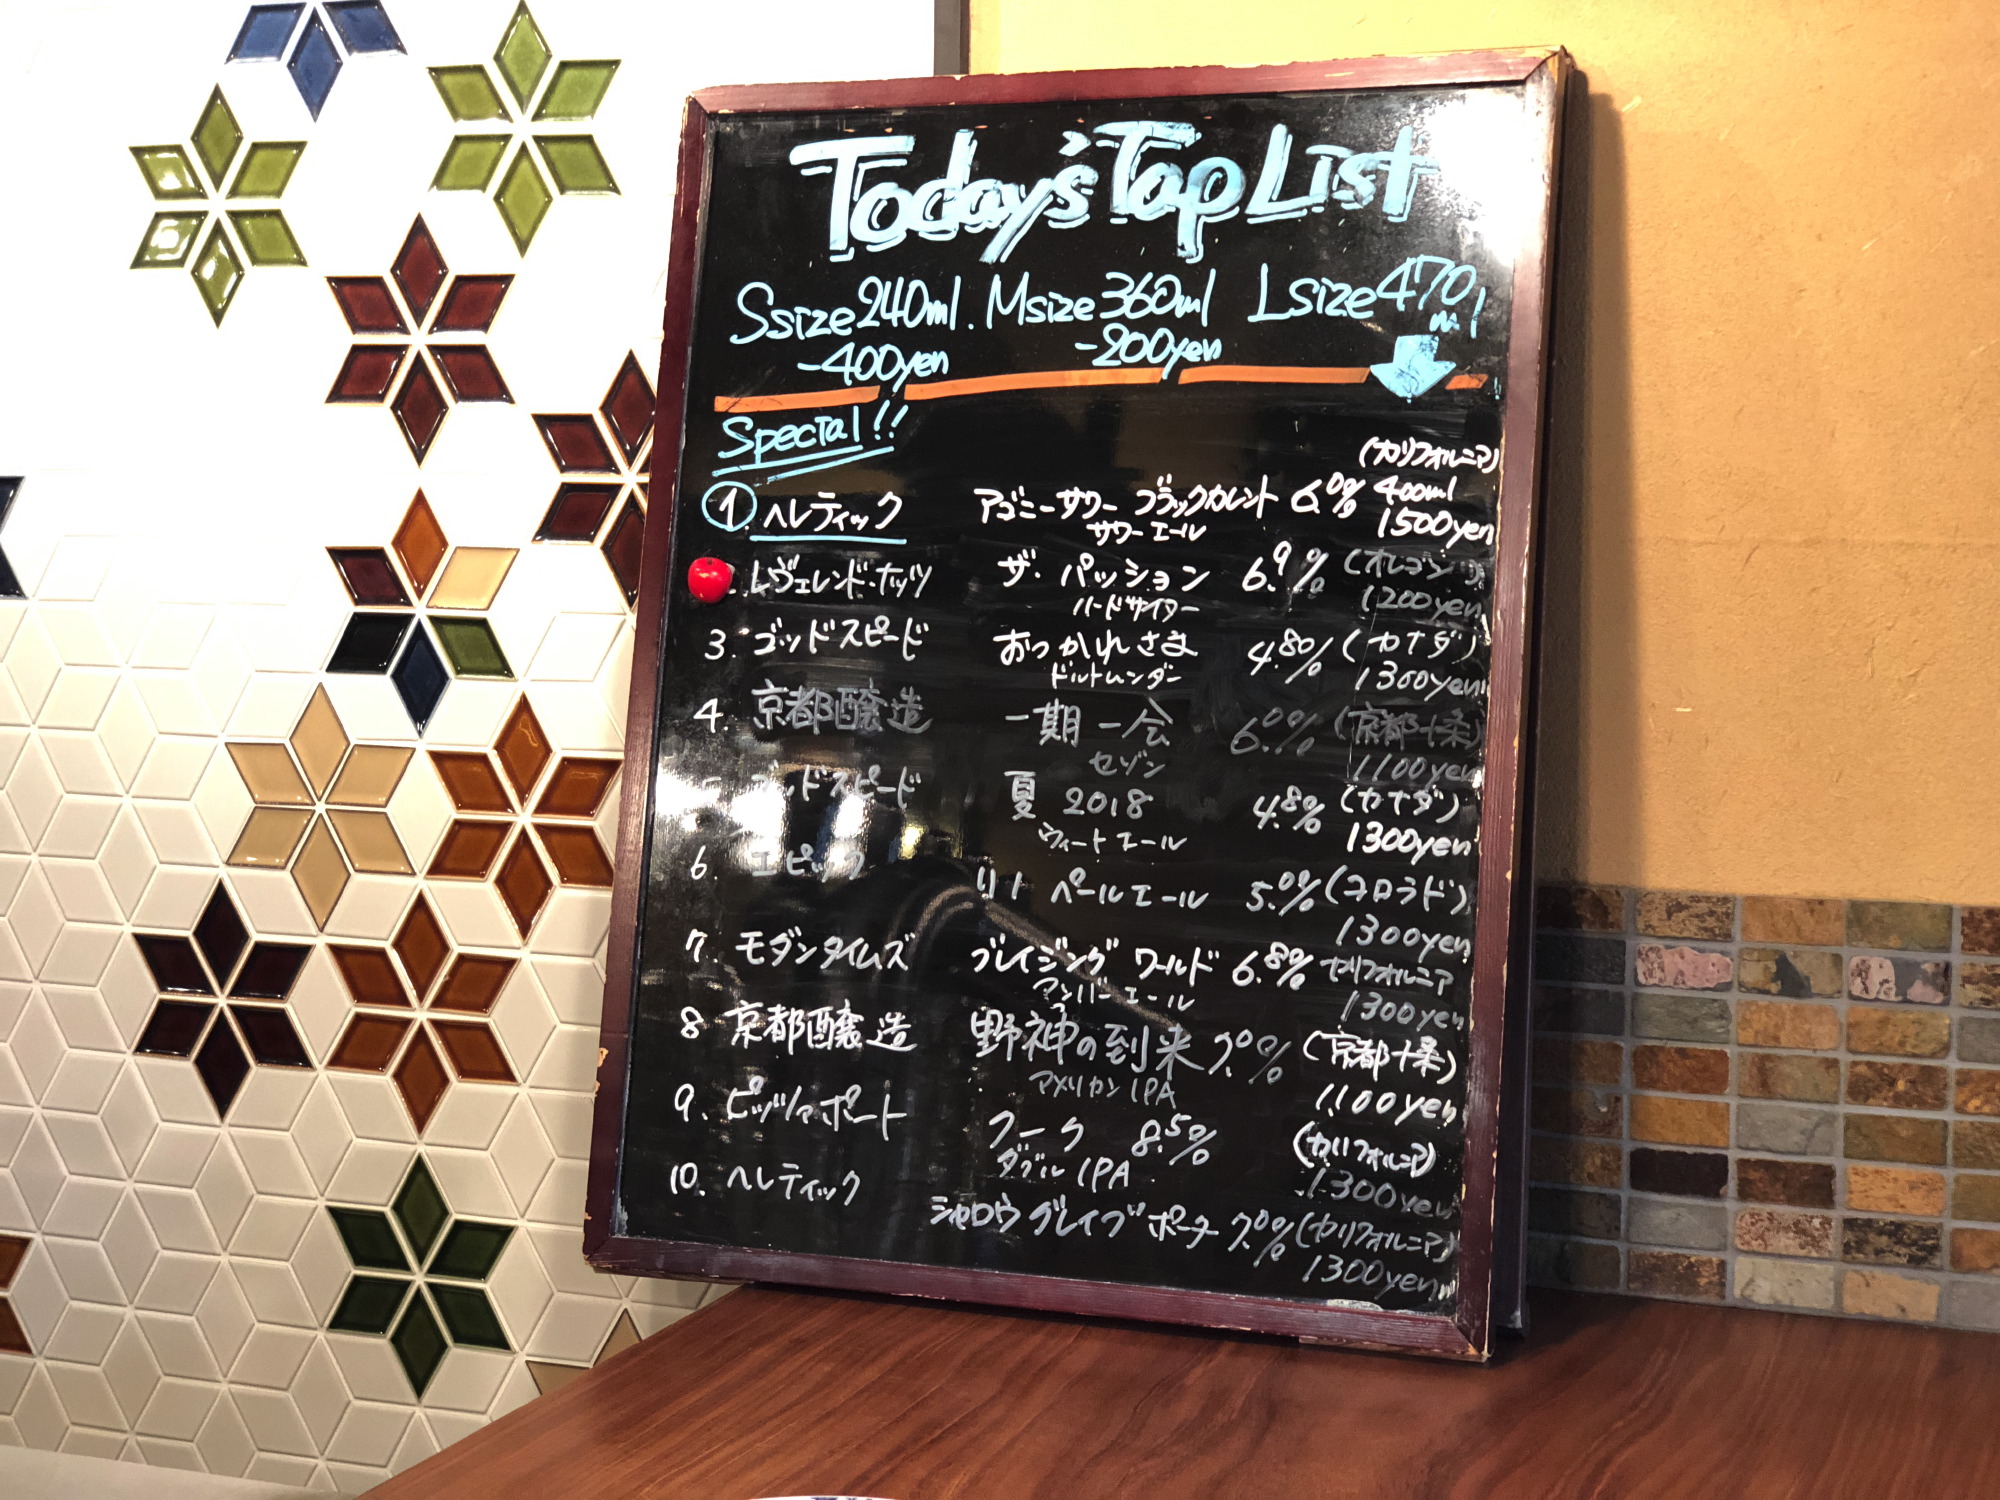 Today's Tap List
S size 240ml. M size 360ml L size 470ml
-400yen -200yen
Special!!
(カリフォルニア)
① ヘレティック アゴニーサワー ブラックカレント 6.0% 400ml
サワーエール 1500yen
レヴェレンド・ナッツ ザ・パッション 6.9% (オレゴン)
ハードサイダー 1200yen
3. ゴッドスピード おつかれさま 4.80% (カナダ)
ドルトムンダー 1300yen
4. 京都醸造 一期一会 6.0% (京都十条)
セゾン 1100yen
ゴッドスピード 夏 2018 4.8% (カナダ)
ウィートエール 1300yen
6. エピック ペールエール 5.0% (コロラド)
1300yen
7. モダンタイムズ ブレイジング ワールド 6.8% カリフォルニア
アンバーエール 1300yen
8 京都醸造 野神の到来 7.0% (京都十条)
アメリカンIPA 1100yen
9. ピッツァポート フーク 8.5% (カリフォルニア)
ダブルIPA 1300yen
10. ヘレティック シャロウグレイブポーター 7.0% (カリフォルニア)
1300yen